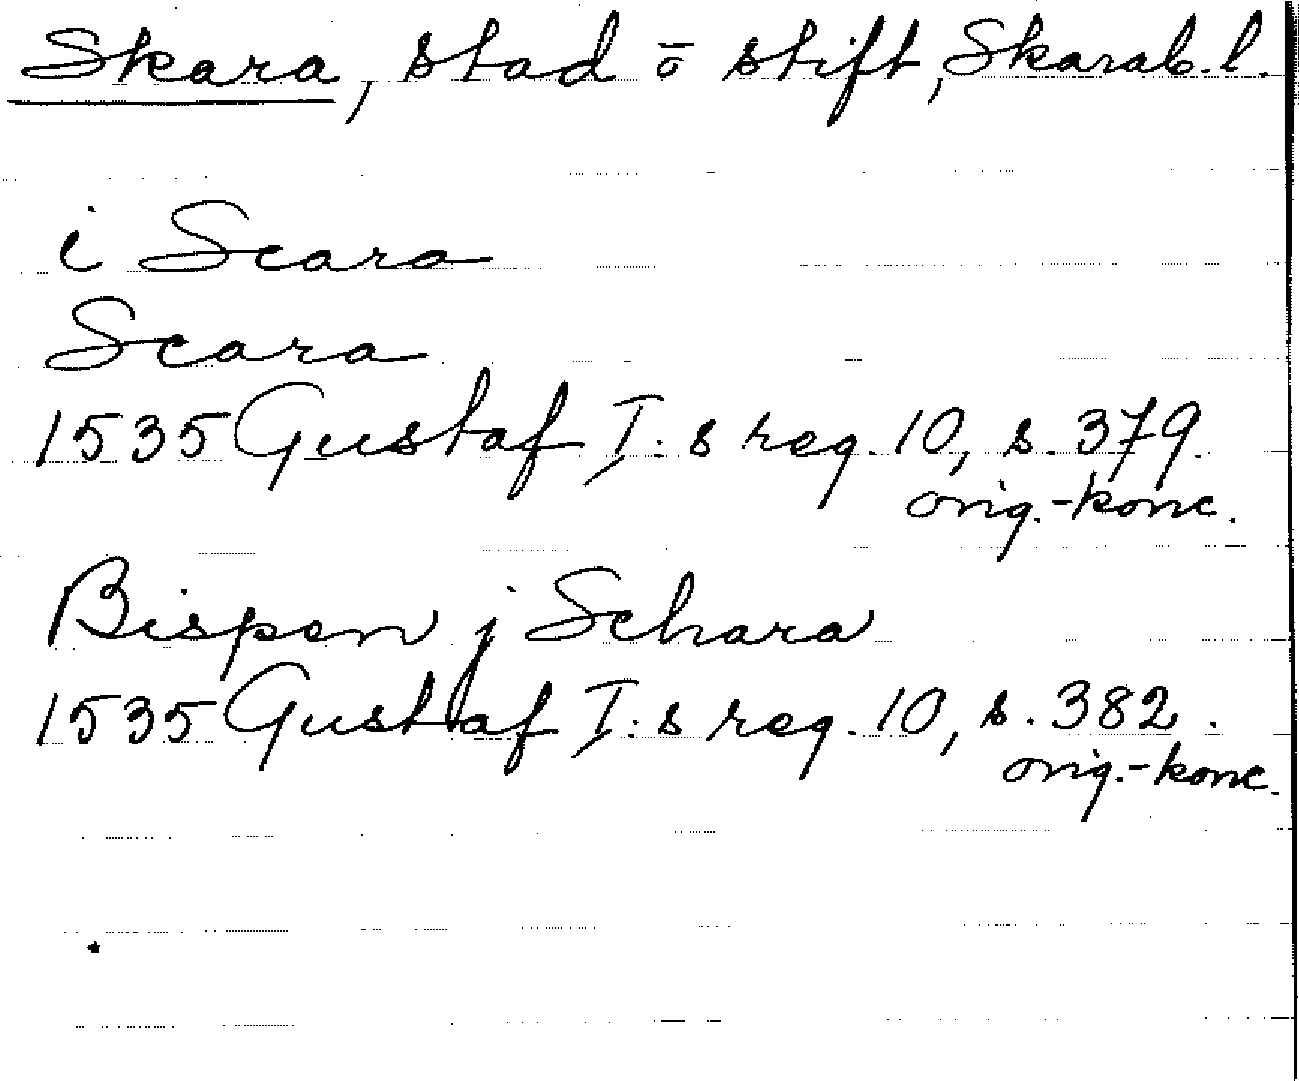 Skara, stad ō stift, Skarab. l.
i Scara
Scara
1535 Gustaf I:s reg. 10, s. 379.
orig.-konc.
Bispen j Schara
1535 Gustaf I:s reg. 10, s. 382.
orig.-konc.